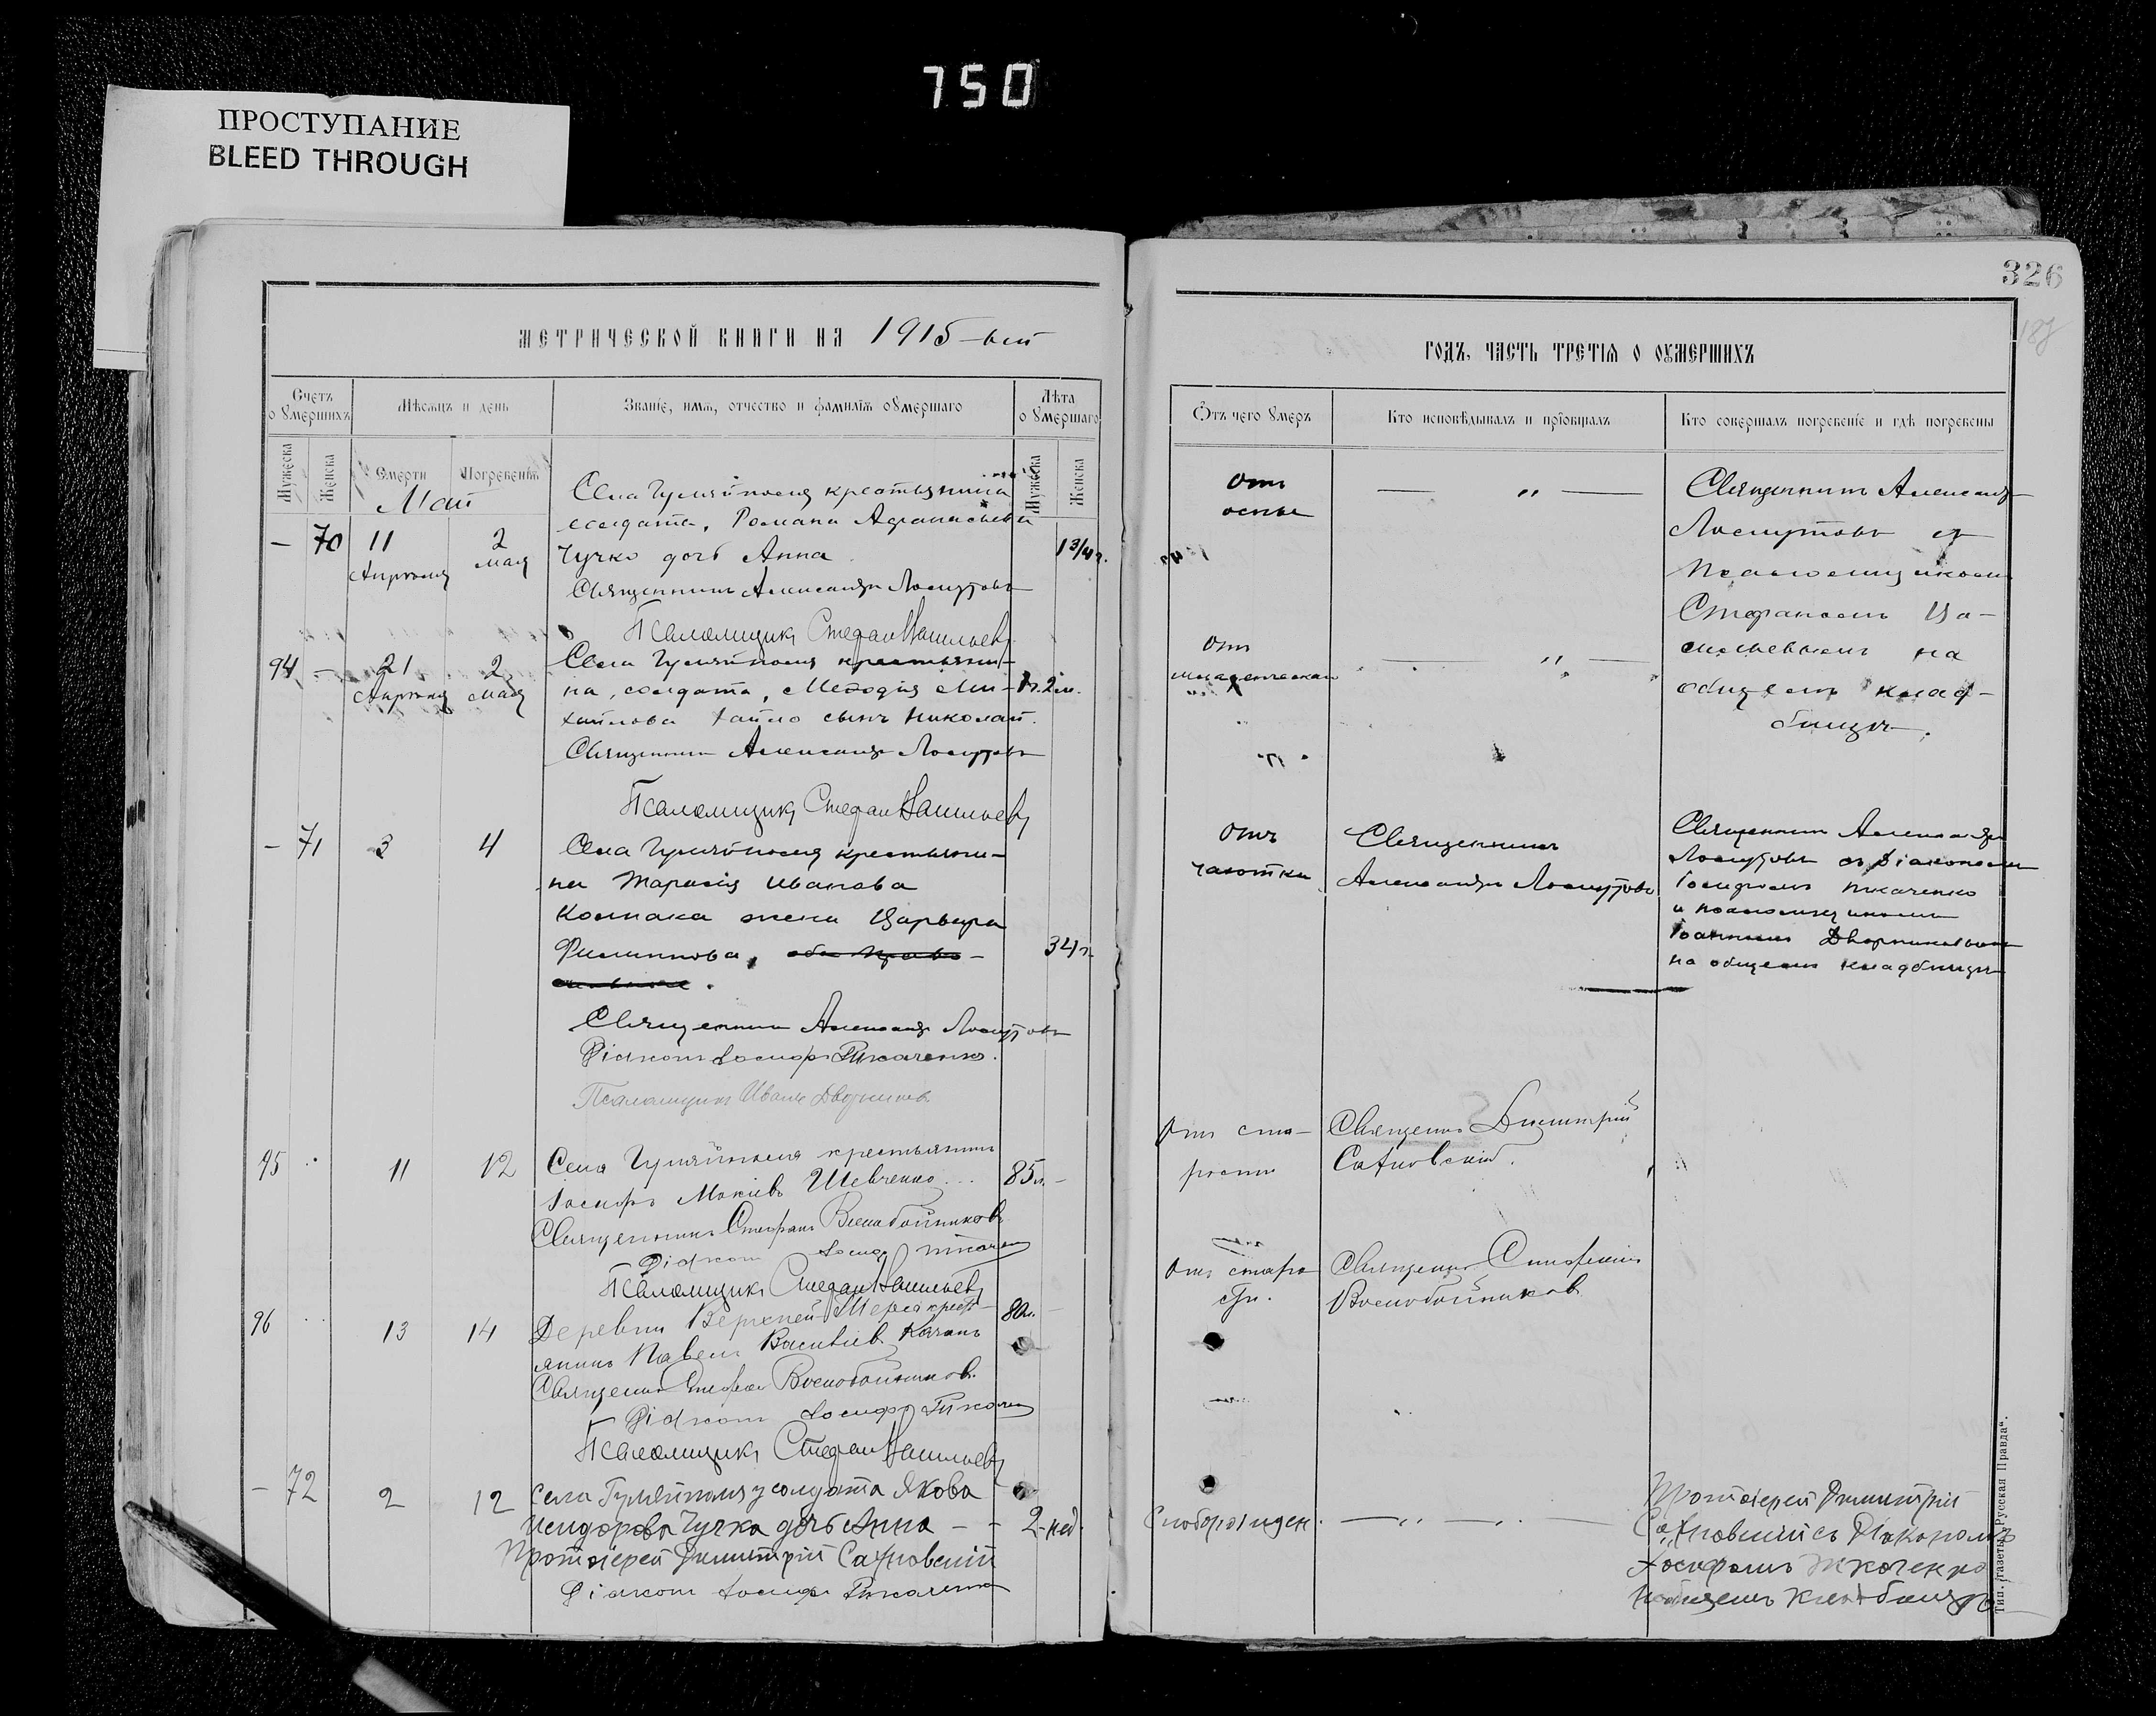 750
ПРОСТУПАНИЕ
BLEED THROUGH
326
МЕТРИЧЕСКОЙ КНИГИ НА 1915-ый
ГОДЪ, ЧАСТЬ ТРЕТІЯ О ОУМЕРШИХЪ
Счетъ о умершихъ
Мѣсяцъ и день
Званіе, имя, отчество и фамилія оумершаго
Лѣта о умершаго
Отъ чего умеръ
Кто исповѣдывалъ и пріобщалъ
Кто совершалъ погребеніе и гдѣ погребены
Мужеска
Женска
Смерти
Погребенія
Мужеска
Женска
Май
Села Гуляйполя крестьянина
солдата, Романа Афанасьева
— 70 11 Апрѣля 2 мая Чучко дочь Анна 1 3/4 г.
Священникъ Александръ Лоскутовъ
Псаломщикъ Стефан Васильевъ
Отъ оспы
— " —
Священникъ Александръ
Лоскутовъ съ
Псаломщикомъ
Стефаномъ Ва-
сильевымъ на
общемъ клад-
бищѣ.
94 — 21 Апрѣля 2 мая Села Гуляйполя крестьяни-
на, солдата, Меѳодія Ми- 1 г. 2 м.
хайлова сынъ Николай.
Священникъ Александръ Лоскутовъ
Псаломщикъ Стефан Васильевъ
Отъ
— " —
— 71 3 4 Села Гуляйполя крестьяни-
на Тарасія Иванова
Колпака жена Варвара
Филиппова, 34 г.
Священникъ Александръ Лоскутовъ
Діаконъ Іосифъ Ткаченко.
Псаломщикъ Иванъ Дворников
Отъ чахотки
Священникъ
Александръ Лоскутовъ
Священникъ Александръ
Лоскутовъ съ Діакономъ
Іосифомъ Ткаченко
и псаломщикомъ
Іоанномъ Дворниковымъ
на общемъ кладбищѣ
95 11 12 Села Гуляйполя крестьянинъ
Іосифъ Шевченко 85 л. —
Священникъ Стефанъ Воснобойников
Діаконъ Іосифъ Ткаченко
Псаломщикъ Стефан Васильевъ
Отъ ста-
рости
Священникъ Димитрій
Сахновскій.
96 13 14 Деревни Верхней крест-
янинъ Павелъ Васильев 80 л.
Священникъ Стефан Воснобойников.
Діаконъ Іосифъ Ткаченко
Псаломщикъ Стефан Васильевъ
Отъ старо
сти.
Священникъ Стефанъ
Воснобойников
— 72 2 12 Села Гуляйполя солдата Якова
Исидорова Чучка дочь Анна — 2-нед.
Протоіерей Димитрій Сахновскій
Діаконъ Іосифъ Ткаченко
Слаборожден.
Протоіерей Димитрій
Сахновскій съ Діакономъ
Іосифомъ Ткаченко
на общемъ кладбищѣ
Тип. „газеты Русская Правда“.